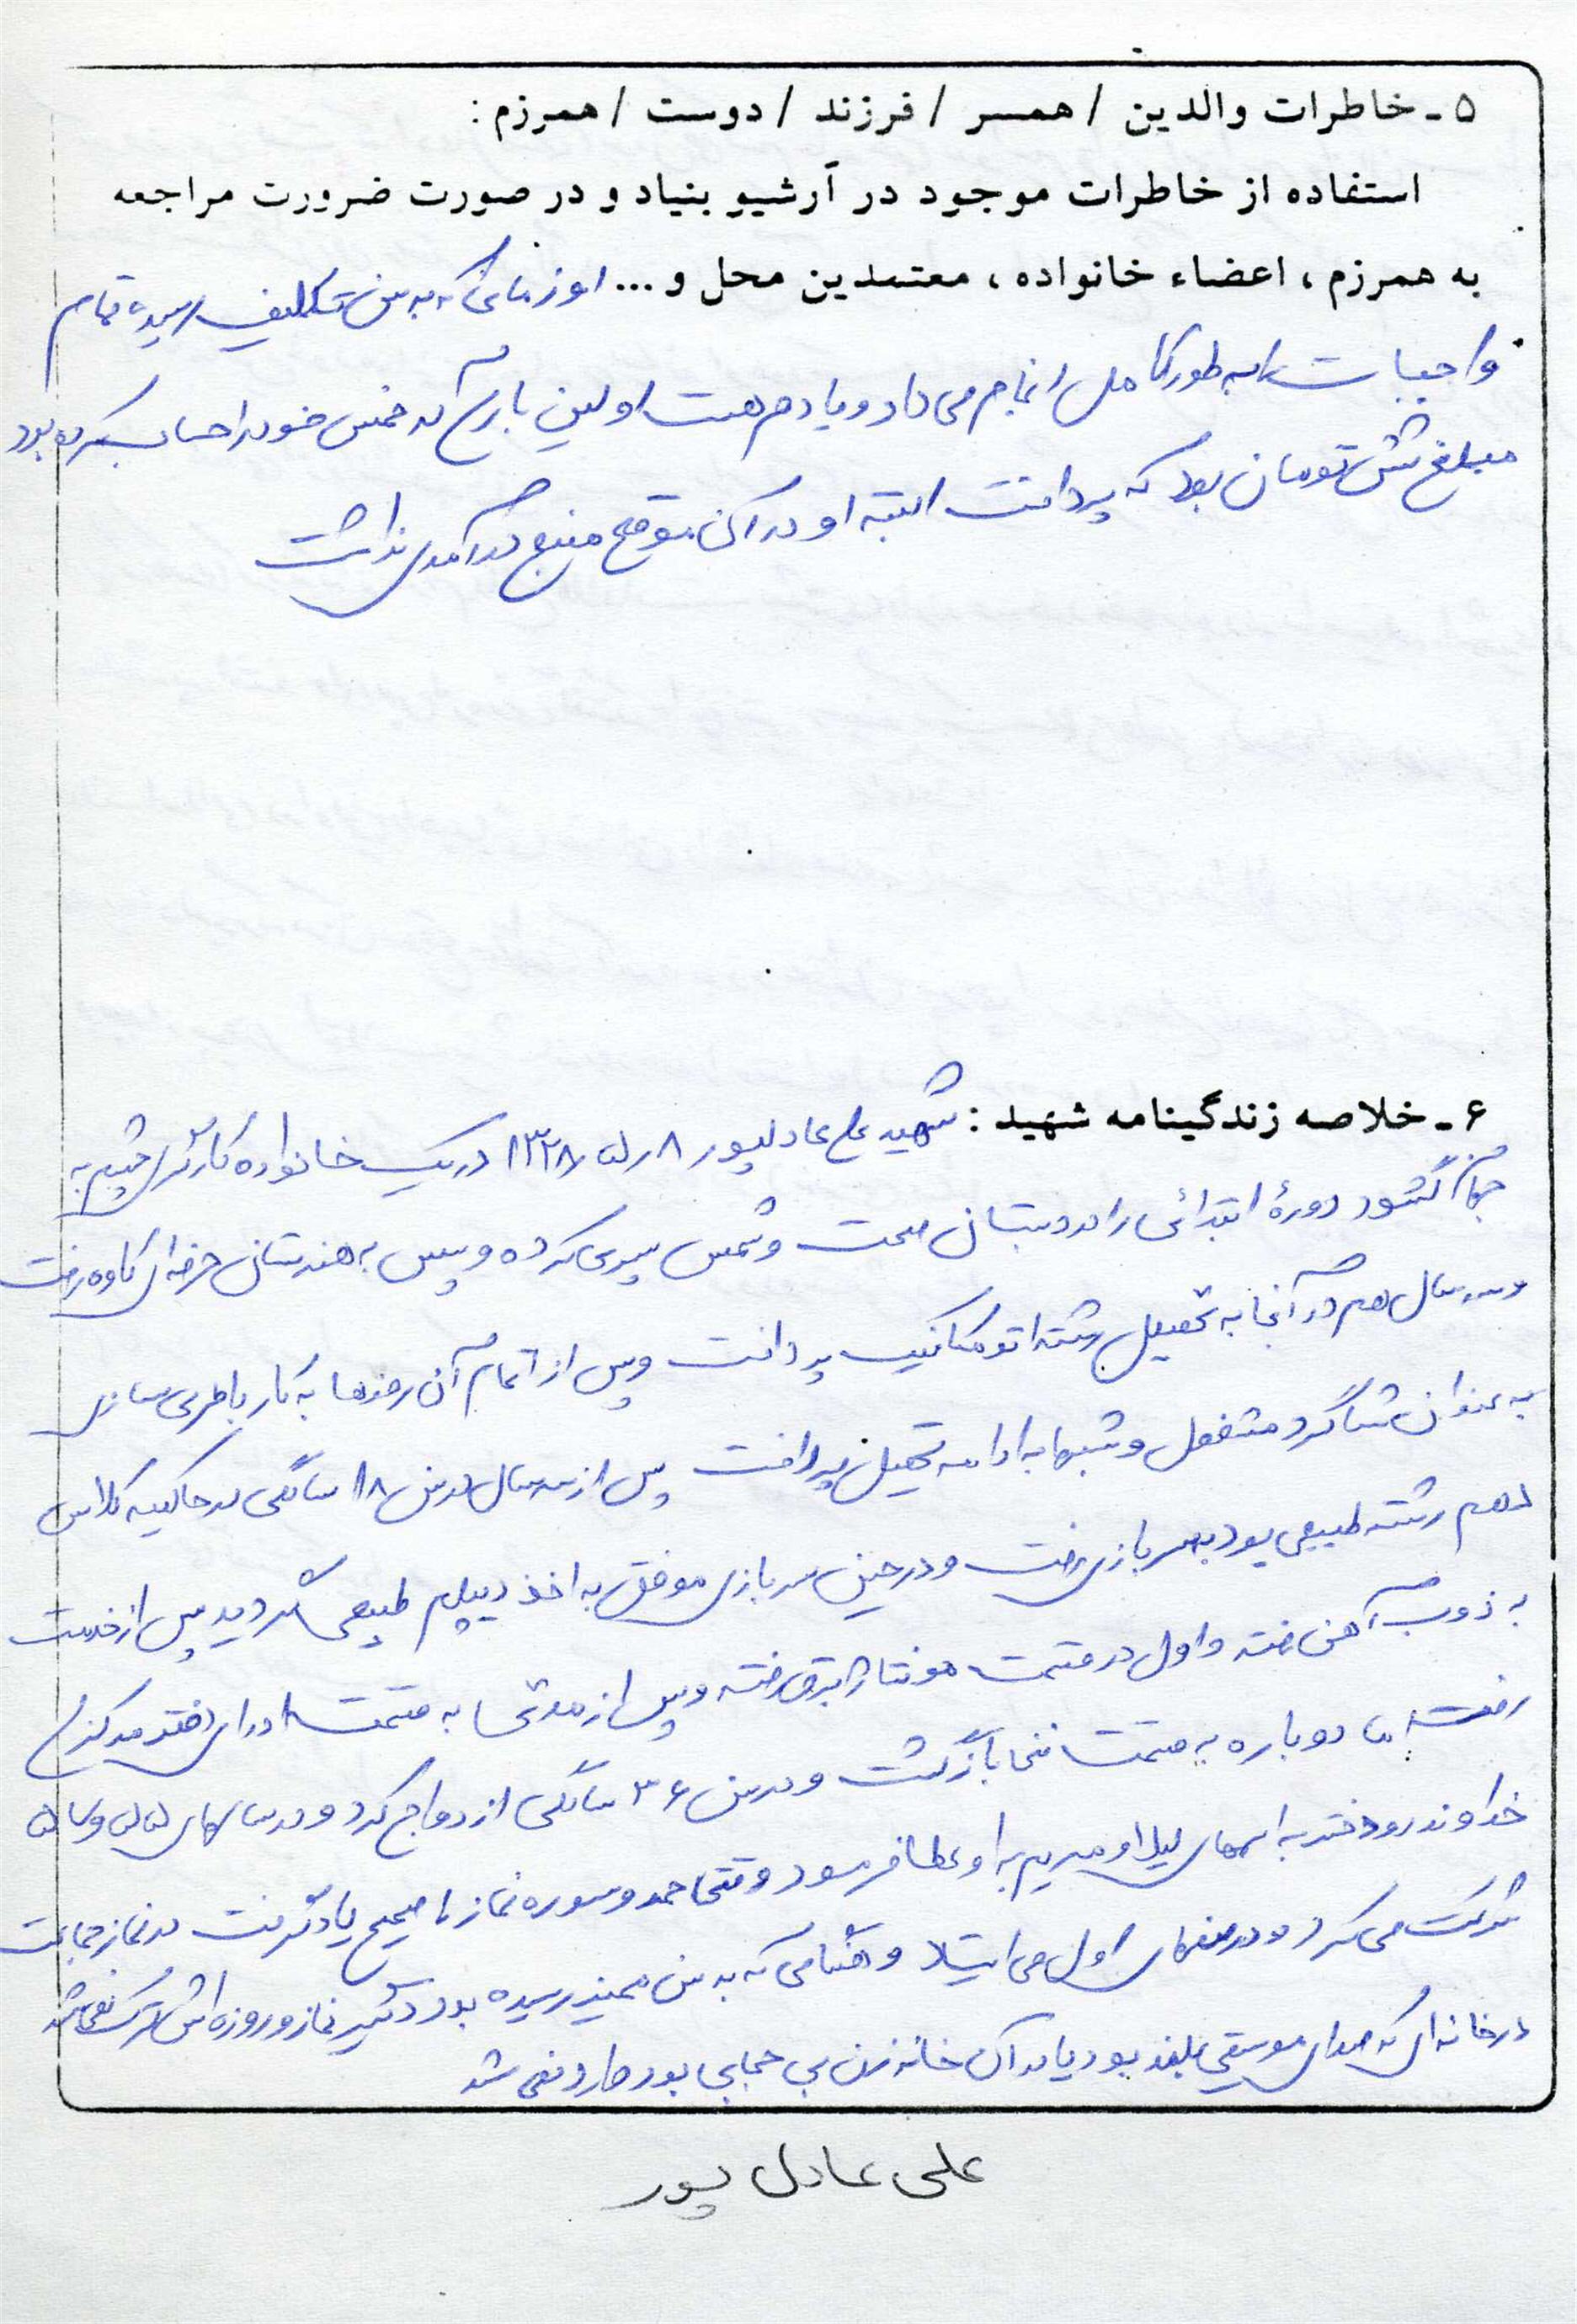 ۵ ـ خاطرات والدین / همسر / فرزند / دوست / همرزم :
استفاده از خاطرات موجود در آرشیو بنیاد و در صورت ضرورت مراجعه
به همرزم ، اعضاء خانواده ، معتمدین محل و ... او زمانی که به سن تکلیف رسید تمام
واجبات را به طور کامل انجام می داد و یادم هست اولین باری که خمس خود را حساب کرده بود
مبلغ شش تومان بود که پرداخت البته او در آن موقع منبع درآمدی نداشت
۶ ـ خلاصه زندگینامه شهید : شهید علی عادلپور ۱۳۲۸/۵/۸ در یک خانواده کارگری چشم به
جهان گشود دورهٔ ابتدائی را در دبستان صحت و شمس سپری کرده و سپس به هنرستان حرفه ای کاوه رفت
و سه سال هم در آنجا به تحصیل رشته اتومکانیک پرداخت و پس از اتمام آن روزها به کار باطری سازی
به عنوان شاگرد مشغول و شبها به ادامه تحصیل پرداخت پس از سه سال در سن ۱۸ سالگی در حالیکه کلاس
دهم رشته طبیعی بود به سربازی رفت و در حین سربازی موفق به اخذ دیپلم طبیعی گردید پس از خدمت
به ذوب آهن رفته و اول در قسمت مونتاژ برق رفته و پس از مدتی به قسمت اداری دفتر مرکزی
رفت اما دوباره به قسمت فنی بازگشت و در سن ۲۶ سالگی ازدواج کرد و در سالهای ۵۵ و ۵۷
خداوند دو دختر به اسمهای لیلا و مریم به او عطا فرمود وقتی حمد و سوره نماز را صحیح یاد گرفت در نماز جماعت
شرکت می کرد و در صفهای اول می ایستاد و هنگامی که به سن ممیز رسیده بود دیگر نماز و روزه اش ترک نمی شد
در خانه ای که صدای موسیقی بلند بود یا در آن خانه زن بی حجابی بود وارد نمی شد
علی عادل پور